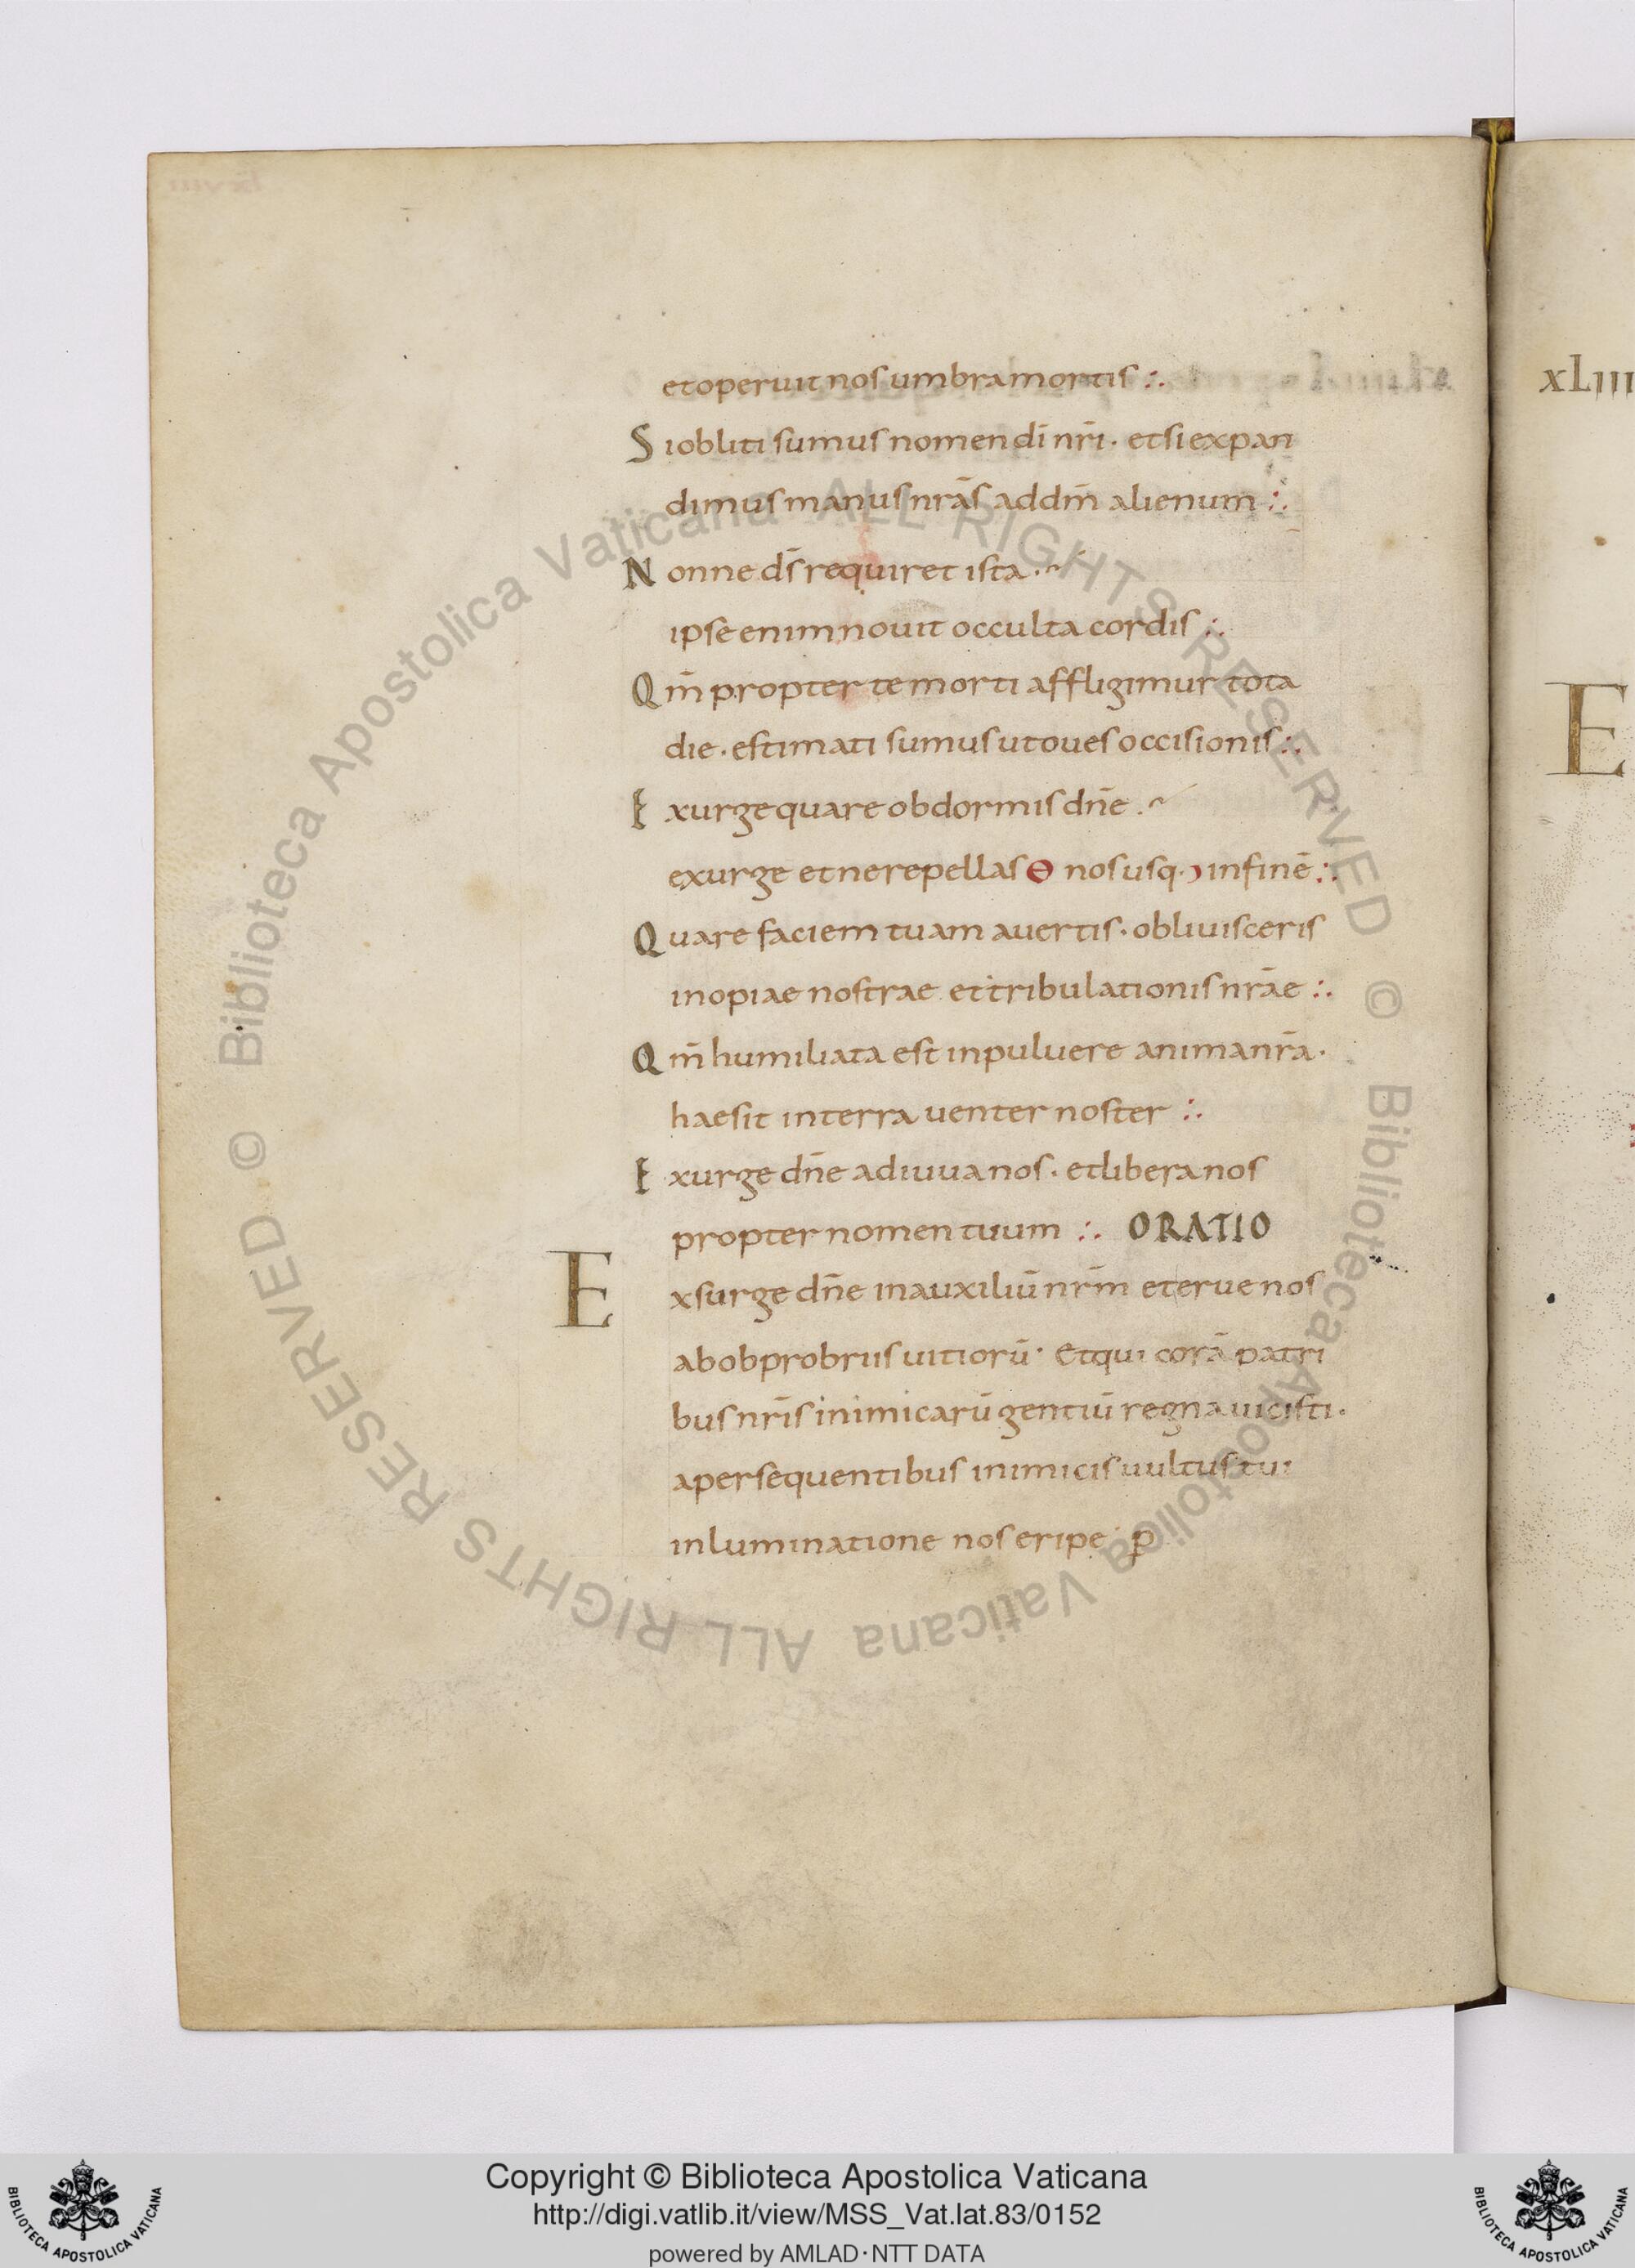 et operuit nos umbra mortis :.
Si obliti sumus nomen dī nr̄i · et si expan
dimus manus nr̄as ad dm̄ alienum :.
Nonne ds̄ requiret ista .
ipse enim nouit occulta cordis :.
Qm̄ propter te morti affligimur tota
die · estimati sumus ut oues occisionis :.
Exurge quare obdormis dn̄e .
exurge et ne repellas Ө nos usq· in finē :.
Quare faciem tuam auertis · obliuisceris
inopiae nostrae et tribulationis nr̄ae :.
Qm̄ humiliata est in puluere anima nr̄a ·
haesit in terra uenter noster :.
Exurge dn̄e adiuua nos · et libera nos
propter nomen tuum :. ORATIO
Exsurge dn̄e in auxiliū nr̄m et erue nos
ab obprobriis uitiorū · Et qui corā patri
bus nr̄is inimicarū gentiū regna uicisti ·
a persequentibus inimicis uultus tui
inluminatione nos eripe · p̄
xLIII
E
© Biblioteca Apostolica Vaticana ALL RIGHTS RESERVED © Biblioteca Apostolica Vaticana ALL RIGHTS RESERVED
Copyright © Biblioteca Apostolica Vaticana
http://digi.vatlib.it/view/MSS_Vat.lat.83/0152
powered by AMLAD·NTT DATA
BIBLIOTECA APOSTOLICA VATICANA
BIBLIOTECA APOSTOLICA VATICANA